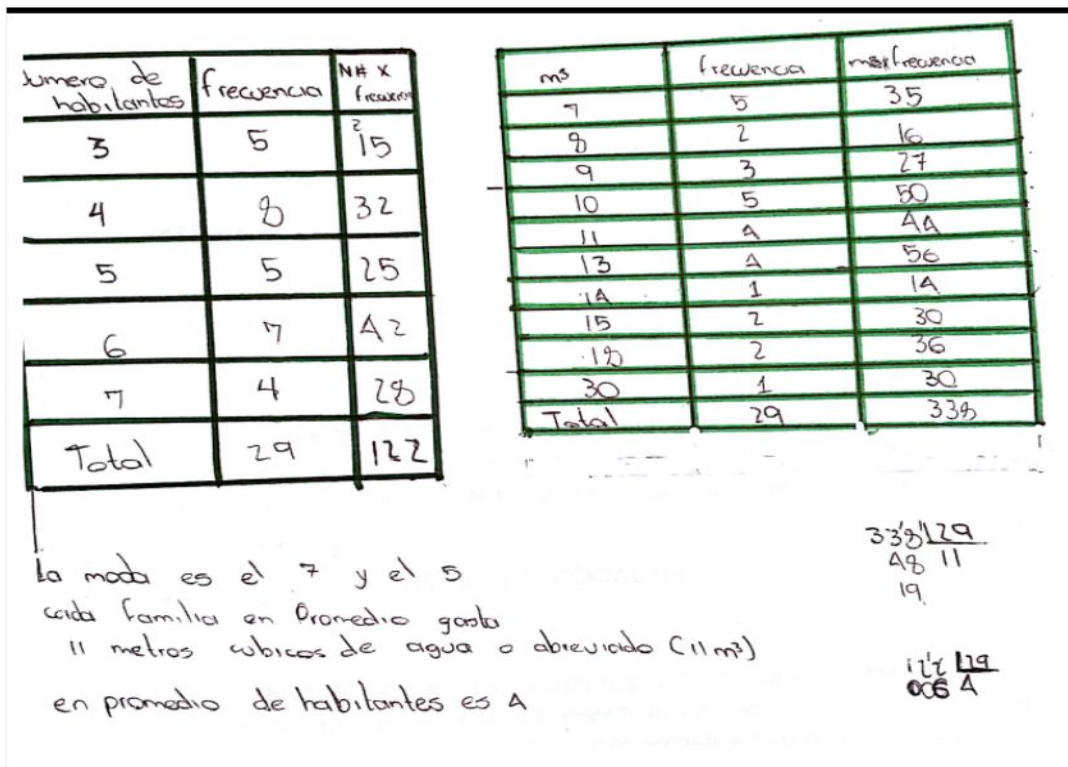 Numero de habitantes frecuencia N# x frecuencia
3 5 15
4 8 32
5 5 25
6 7 42
7 4 28
Total 29 122
m³ frecuencia frecuencia
7 5 35
8 2 16
9 3 27
10 5 50
11 4 44
13 4 56
14 1 14
15 2 30
18 2 36
30 1 30
Total 29 338
La moda es el 7 y el 5
cada familia en Promedio gasta
11 metros cubicos de agua o abreviado (11 m³)
en promedio de habitantes es 4
338 29
48 11
19
122 29
006 4